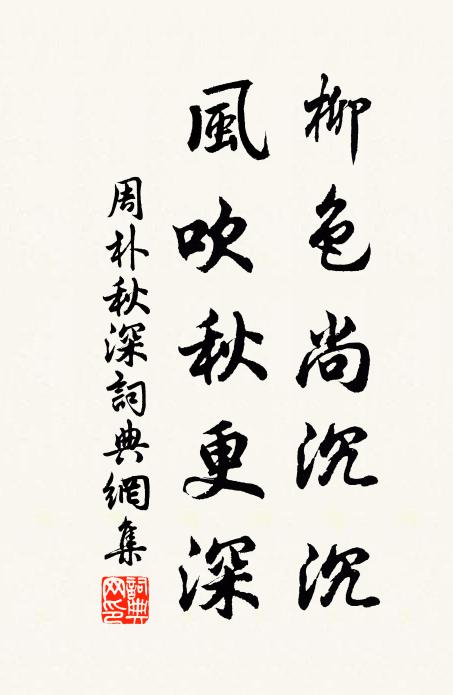 柳色尚沉沉
風吹秋更深
周朴秋深詞典網集
詞典网印